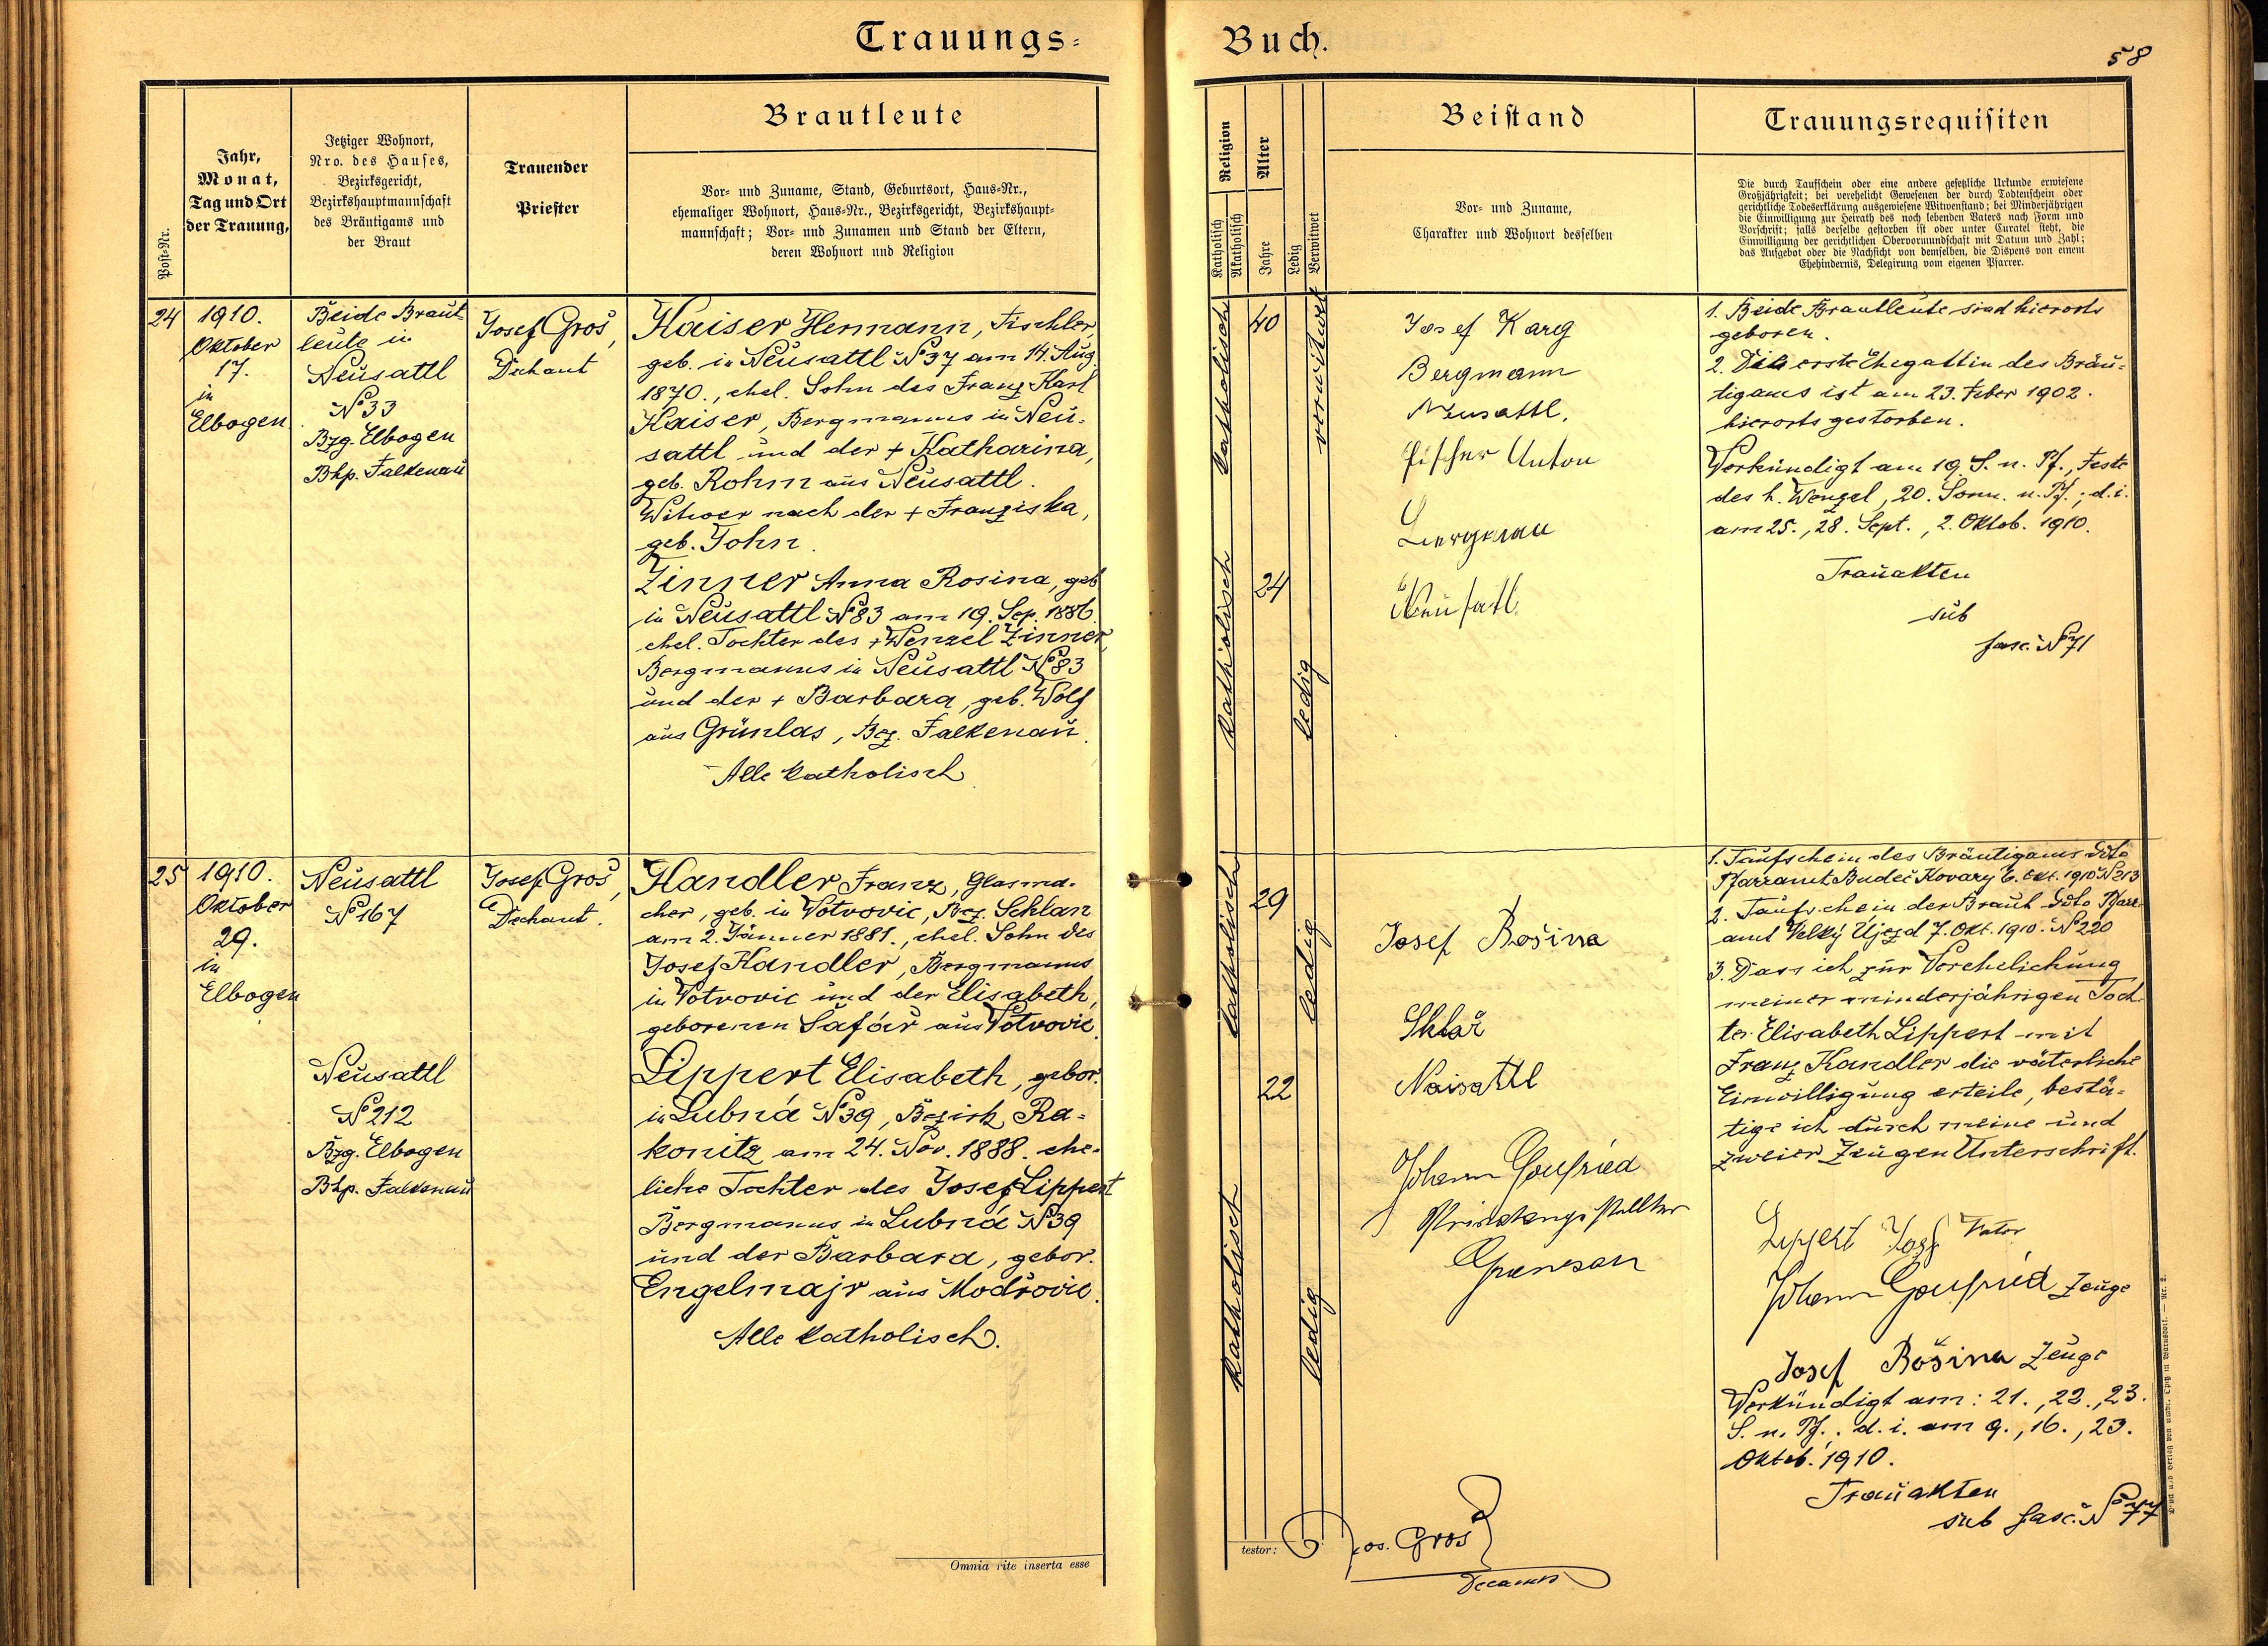 Trauungs-
Buch.
58
Post-Nr.
Jahr,
Monat,
Tag und Ort
der Trauung,
Jetziger Wohnort,
Nro. des Hauses,
Bezirksgericht,
Bezirkshauptmannschaft
des Bräutigams und
der Braut
Trauender
Priester
Brautleute
Vor- und Zuname, Stand, Geburtsort, Haus-Nr.,
ehemaliger Wohnort, Haus-Nr., Bezirksgericht, Bezirkshaupt-
mannschaft; Vor- und Zunamen und Stand der Eltern,
deren Wohnort und Religion
Religion
Katholisch
Akatholisch
Alter
Jahre
Ledig
Verwitwet
Beistand
Vor- und Zuname,
Charakter und Wohnort desselben
Trauungsrequisiten
Die durch Taufschein oder eine andere gesetzliche Urkunde erwiesene
Großjährigkeit; bei verehelicht Gewesenen der durch Todtenschein oder
gerichtliche Todeserklärung ausgewiesene Witwenstand; bei Minderjährigen
die Einwilligung zur Heirath des noch lebenden Vaters nach Form und
Vorschrift; falls derselbe gestorben ist oder unter Curatel steht, die
Einwilligung der gerichtlichen Obervormundschaft mit Datum und Zahl;
das Aufgebot oder die Nachsicht von demselben, die Dispens von einem
Ehehindernis, Delegirung vom eigenen Pfarrer.
24
1910.
Oktober
17.
in
Elbogen.
Beide Braut-
leute in
Neusattl
№ 33
Bzg. Elbogen
Bhp. Falkenau
Josef Gros,
Dechant
Kaiser Hermann, Tischler,
geb. in Neusattl № 37 am 14. Aug.
1870., ehel. Sohn des Franz Karl
Kaiser, Bergmanns in Neu-
sattl und der + Katharina,
geb. Rohm aus Neusattl.
Witwer nach der + Franziska,
geb. John.
Zinner Anna Rosina, geb.
in Neusattl № 83 am 19. Sep. 1886.
ehel. Tochter des + Wenzel Zinner,
Bergmanns in Neusattl № 83
und der + Barbara, geb. Wolf
aus Grünlas, Bez. Falkenau.
Alle katholisch
katholisch
40
verwitwet
katholisch
24
ledig
Josef Karg
Bergmann
Neusattl.
Fischer Anton
Bergmann
Neusattl.
1. Beide Brautleute sind hierorts
geboren.
2. Die erste Ehegattin des Bräu-
tigams ist am 23. Feber 1902.
hierorts gestorben.
Verkündigt am 19. S. n. Pf., Feste
des h. Wenzel, 20. Sonn. n. Pf.; d. i.
am 25., 28. Sept., 2. Oktob. 1910.
Trauakten
sub
fasc. № 71
25
1910.
Oktober
29.
in
Elbogen
Neusattl
№ 167
Neusattl
№ 212
Bzg. Elbogen
Bhp. Falkenau
Josef Gros,
Dechant.
Handler Franz, Glasma-
cher, geb. in Votvovic, Bez. Schlan
am 2. Jänner 1881., ehel. Sohn des
Josef Handler, Bergmanns
in Votvovic und der Elisabeth,
geborenen Šafář aus Votvovic.
Lippert Elisabeth, gebor.
in Lubná № 39, Bezirk Ra-
konitz am 24. Nov. 1888. ehe-
liche Tochter des Josef Lippert
Bergmanns in Lubná № 39
und der Barbara, gebor.
Engelmajr aus Modřovic.
Alle katholisch.
katholisch
29
ledig
22
katholisch
ledig
Josef Rošina
Sklář
Naisattl
Johann Goufried
Grünesau
1. Taufschein des Bräutigams ddto
Pfarramt Budeč Kovary 6. Okt. 1910 № 213
2. Taufschein der Braut ddto Pfarr-
amt Velký Újezd 7. Okt. 1910. № 220
3. Dass ich zur Verehelichung
meiner minderjährigen Toch-
ter Elisabeth Lippert mit
Franz Handler die väterliche
Einwilligung erteile, bestä-
tige ich durch meine und
zweier Zeugen Unterschrift.
Lippert Josef Vater
Johann Goufried Zeuge
Josef Rošina Zeuge
Verkündigt am: 21., 22., 23.
S. n. Pf. d. i. am 9., 16., 23.
Oktob. 1910.
Trauakten
sub fasc. № 77
Omnia rite inserta esse
testor:
Jos. Gros
Decanus